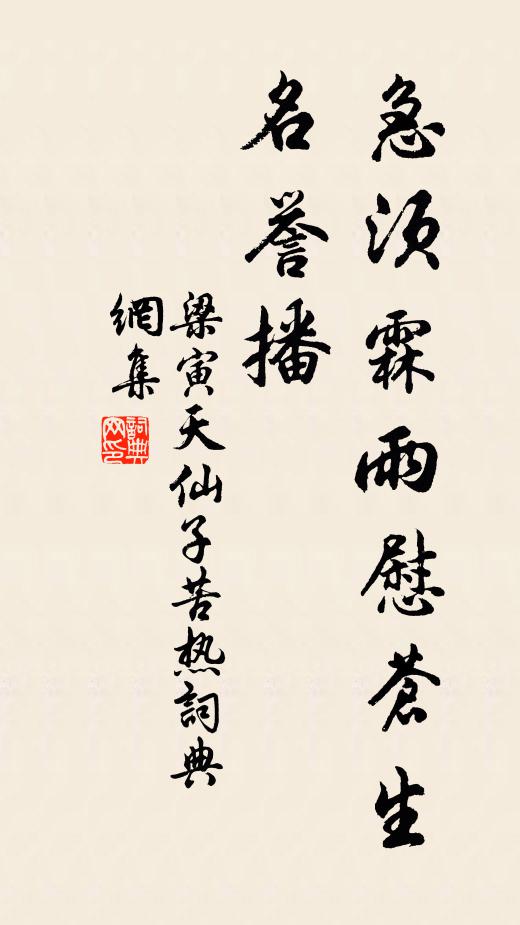 急須霖雨慰蒼生
名誉播
梁寅天仙子苦热詞典
網集
詞典
网印